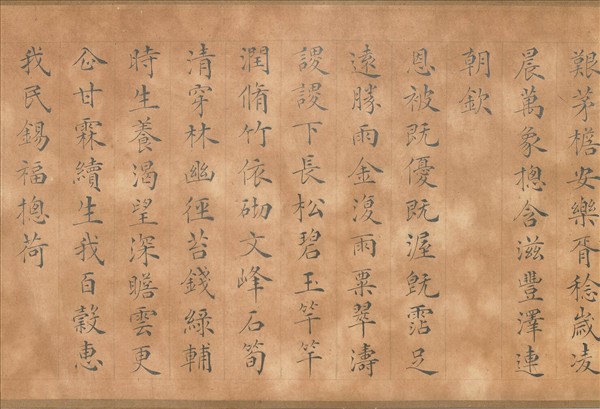 艱茅檐安樂胥稔歲凌
晨萬象摠含滋豐澤連
朝欽
恩被既優既渥既霑足
遠勝雨金復雨粟翠濤
謖謖下長松碧玉竿竿
潤脩竹依砌文峰石筍
清穿林幽徑苔錢綠輔
時生養渴望深瞻雲更
企甘霖續生我百穀惠
我民錫福摠荷